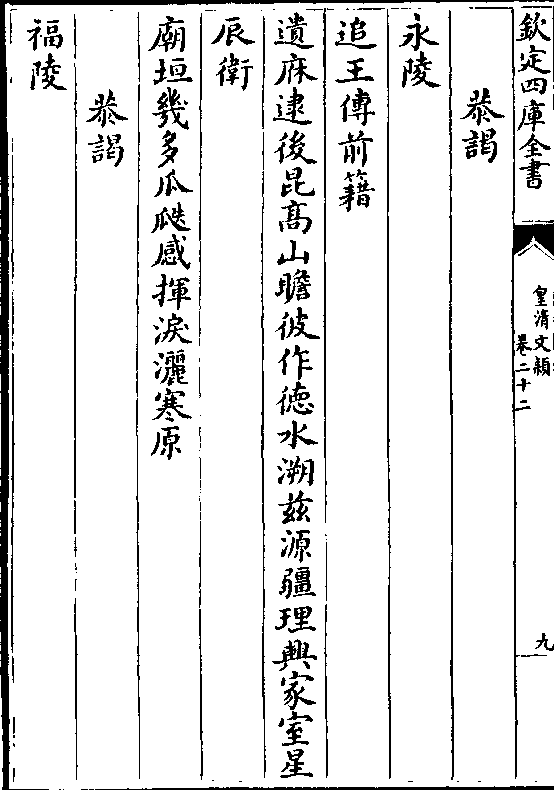 欽定四庫全書
皇清文穎
卷二十二
九
恭謁
永陵
追王傳前籍
遺庥逮後昆高山瞻彼作徳水溯兹源疆理興家室星
辰衛
廟垣幾多瓜瓞感揮淚灑寒原
恭謁
福陵